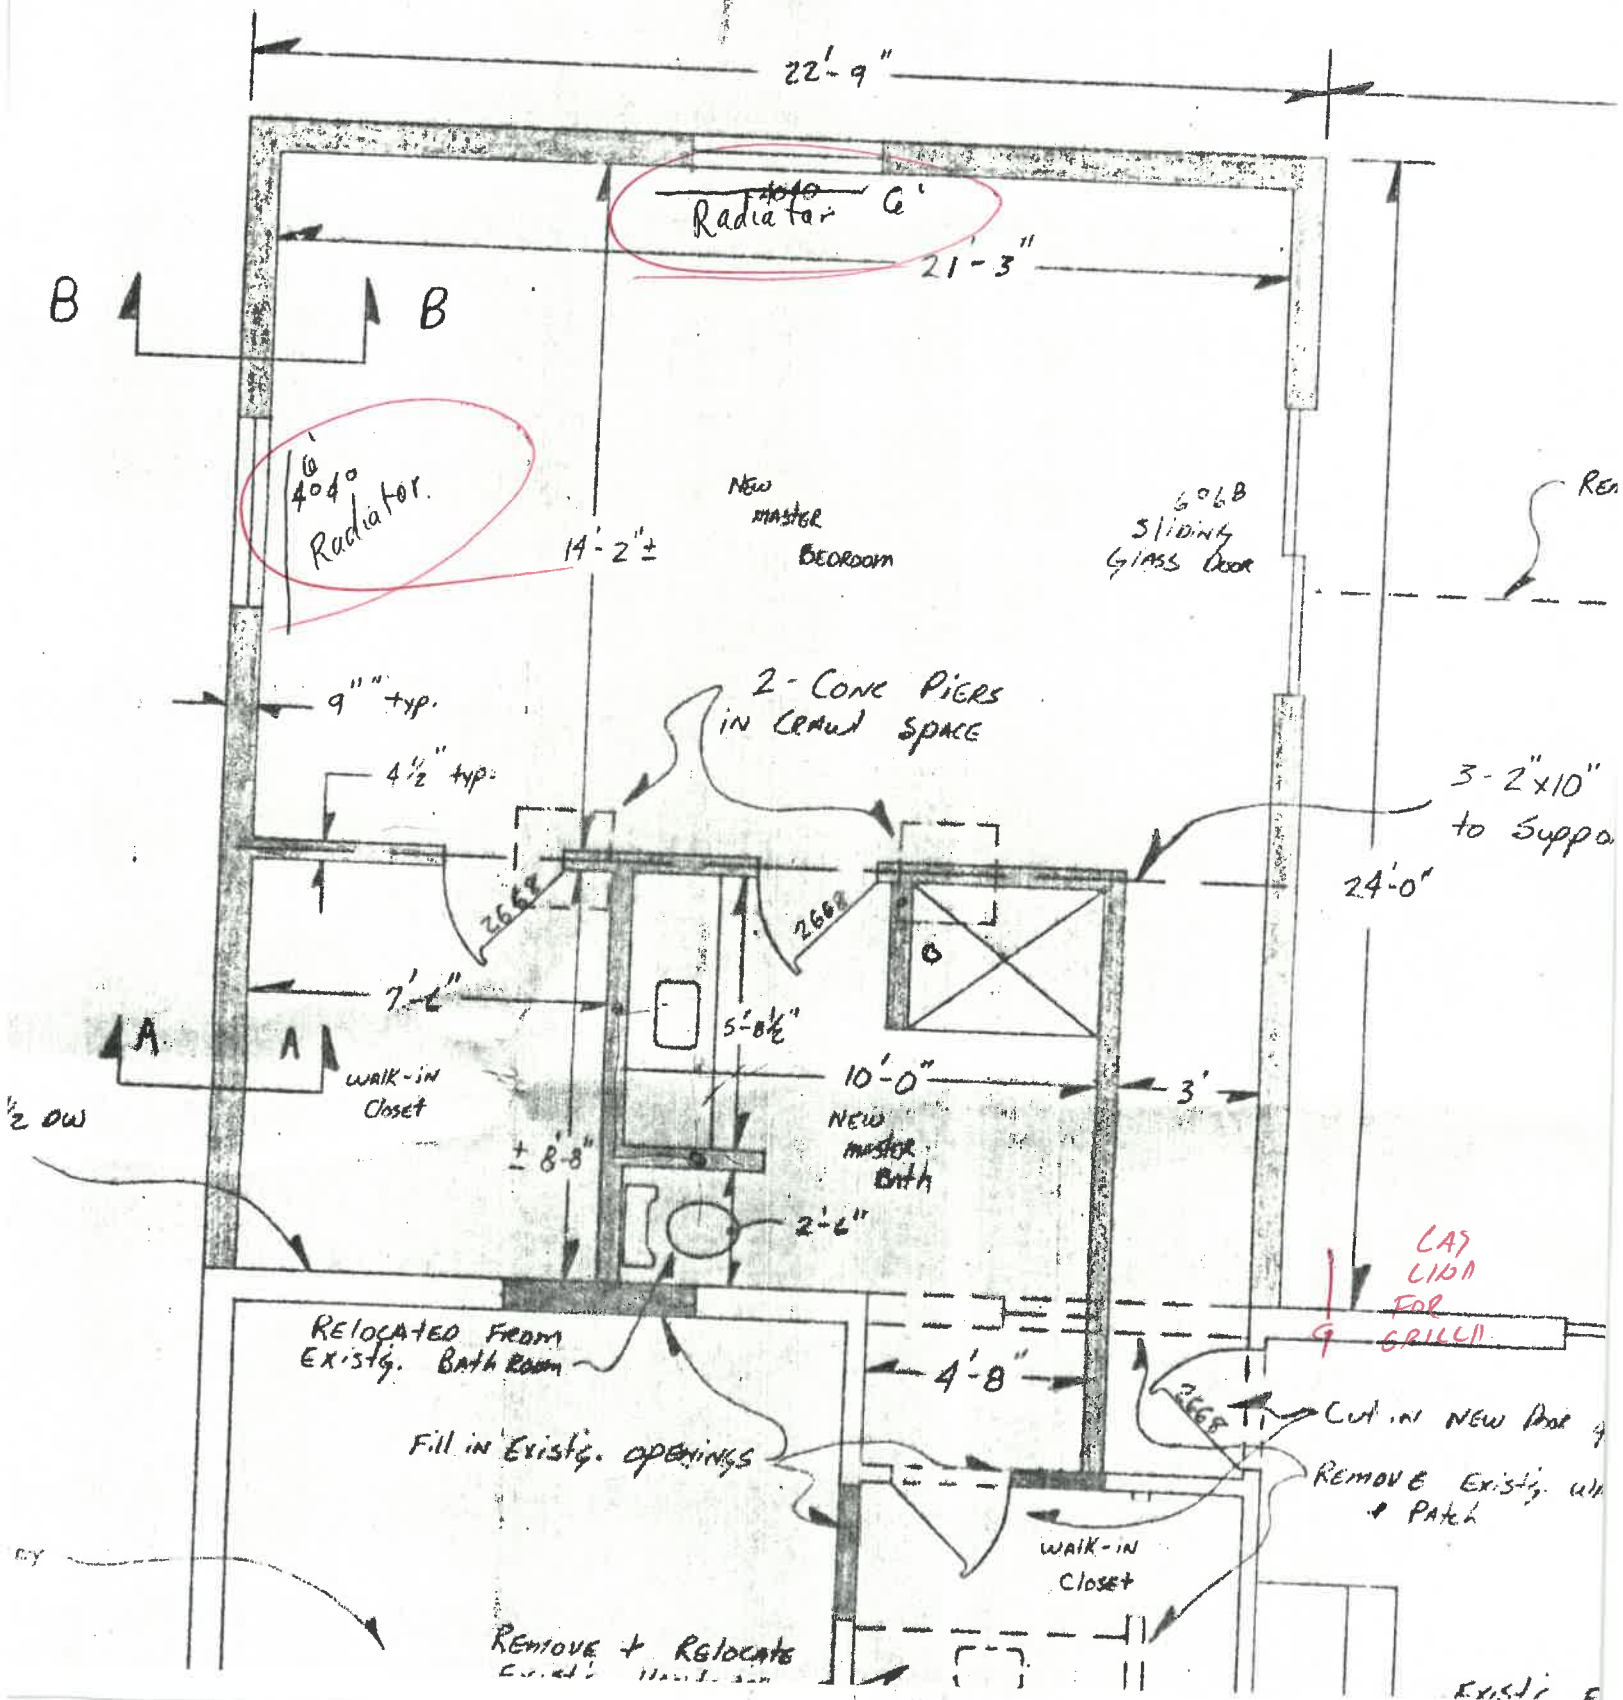 22'-9"
4040
Radiator 6'
21'-3"
B
B
6'
4040
Radiator.
NEW
MASTER
BEDROOM
6068
SliDiNG
GlASS DooR
14'-2"±
2- CONC PiERS
iN CRAWl SPACE
9"" typ.
4½" typ.
3-2"x10"
to Suppo
24'-0"
2668
2668
7'-6"
5'-8½"
A
A
WAlK-iN
Closet
10'-0"
3'
NEW
mAStER
BAth
½ OW
± 8'-8"
2'-6"
GAS
LINE
FOR
GRILL
G
RElOCAtED FROM
Existg. BAthRoom
4'-8"
2668
Cut iN NEW DooR
Fill in Existg. OPENiNGS
REMOVE Existg.
+ PAtch
WAlK-iN
Closet
REMOVE + RElOCAtE